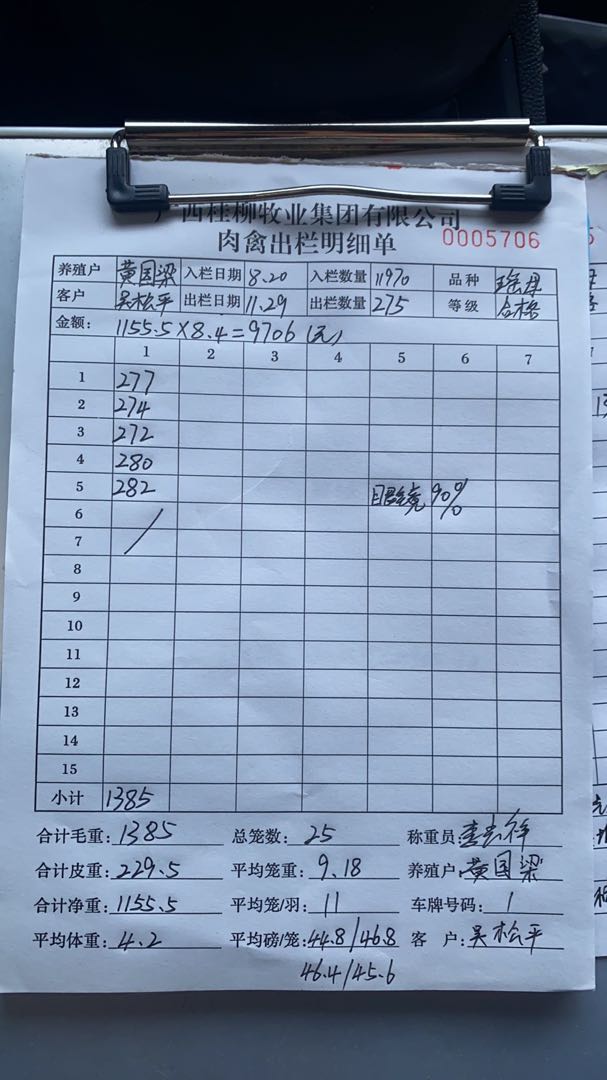 广西桂柳牧业集团有限公司
肉禽出栏明细单 0005706
养殖户 黄国梁 入栏日期 8.20 入栏数量 11970 品种 瑶母
客户 吴松平 出栏日期 11.29 出栏数量 275 等级 合格
金额: 1155.5×8.4=9706(元)
1 2 3 4 5 6 7
1 277
2 274
3 272
4 280
5 282 眼镜90%
6
7 /
8
9
10
11
12
13
14
15
小计 1385
合计毛重: 1385 总笼数: 25 称重员:
合计皮重: 229.5 平均笼重: 9.18 养殖户: 黄国梁
合计净重: 1155.5 平均笼/羽: 11 车牌号码: 1
平均体重: 4.2 平均磅/笼: 44.8/46.8 客户: 吴松平
46.4/45.6